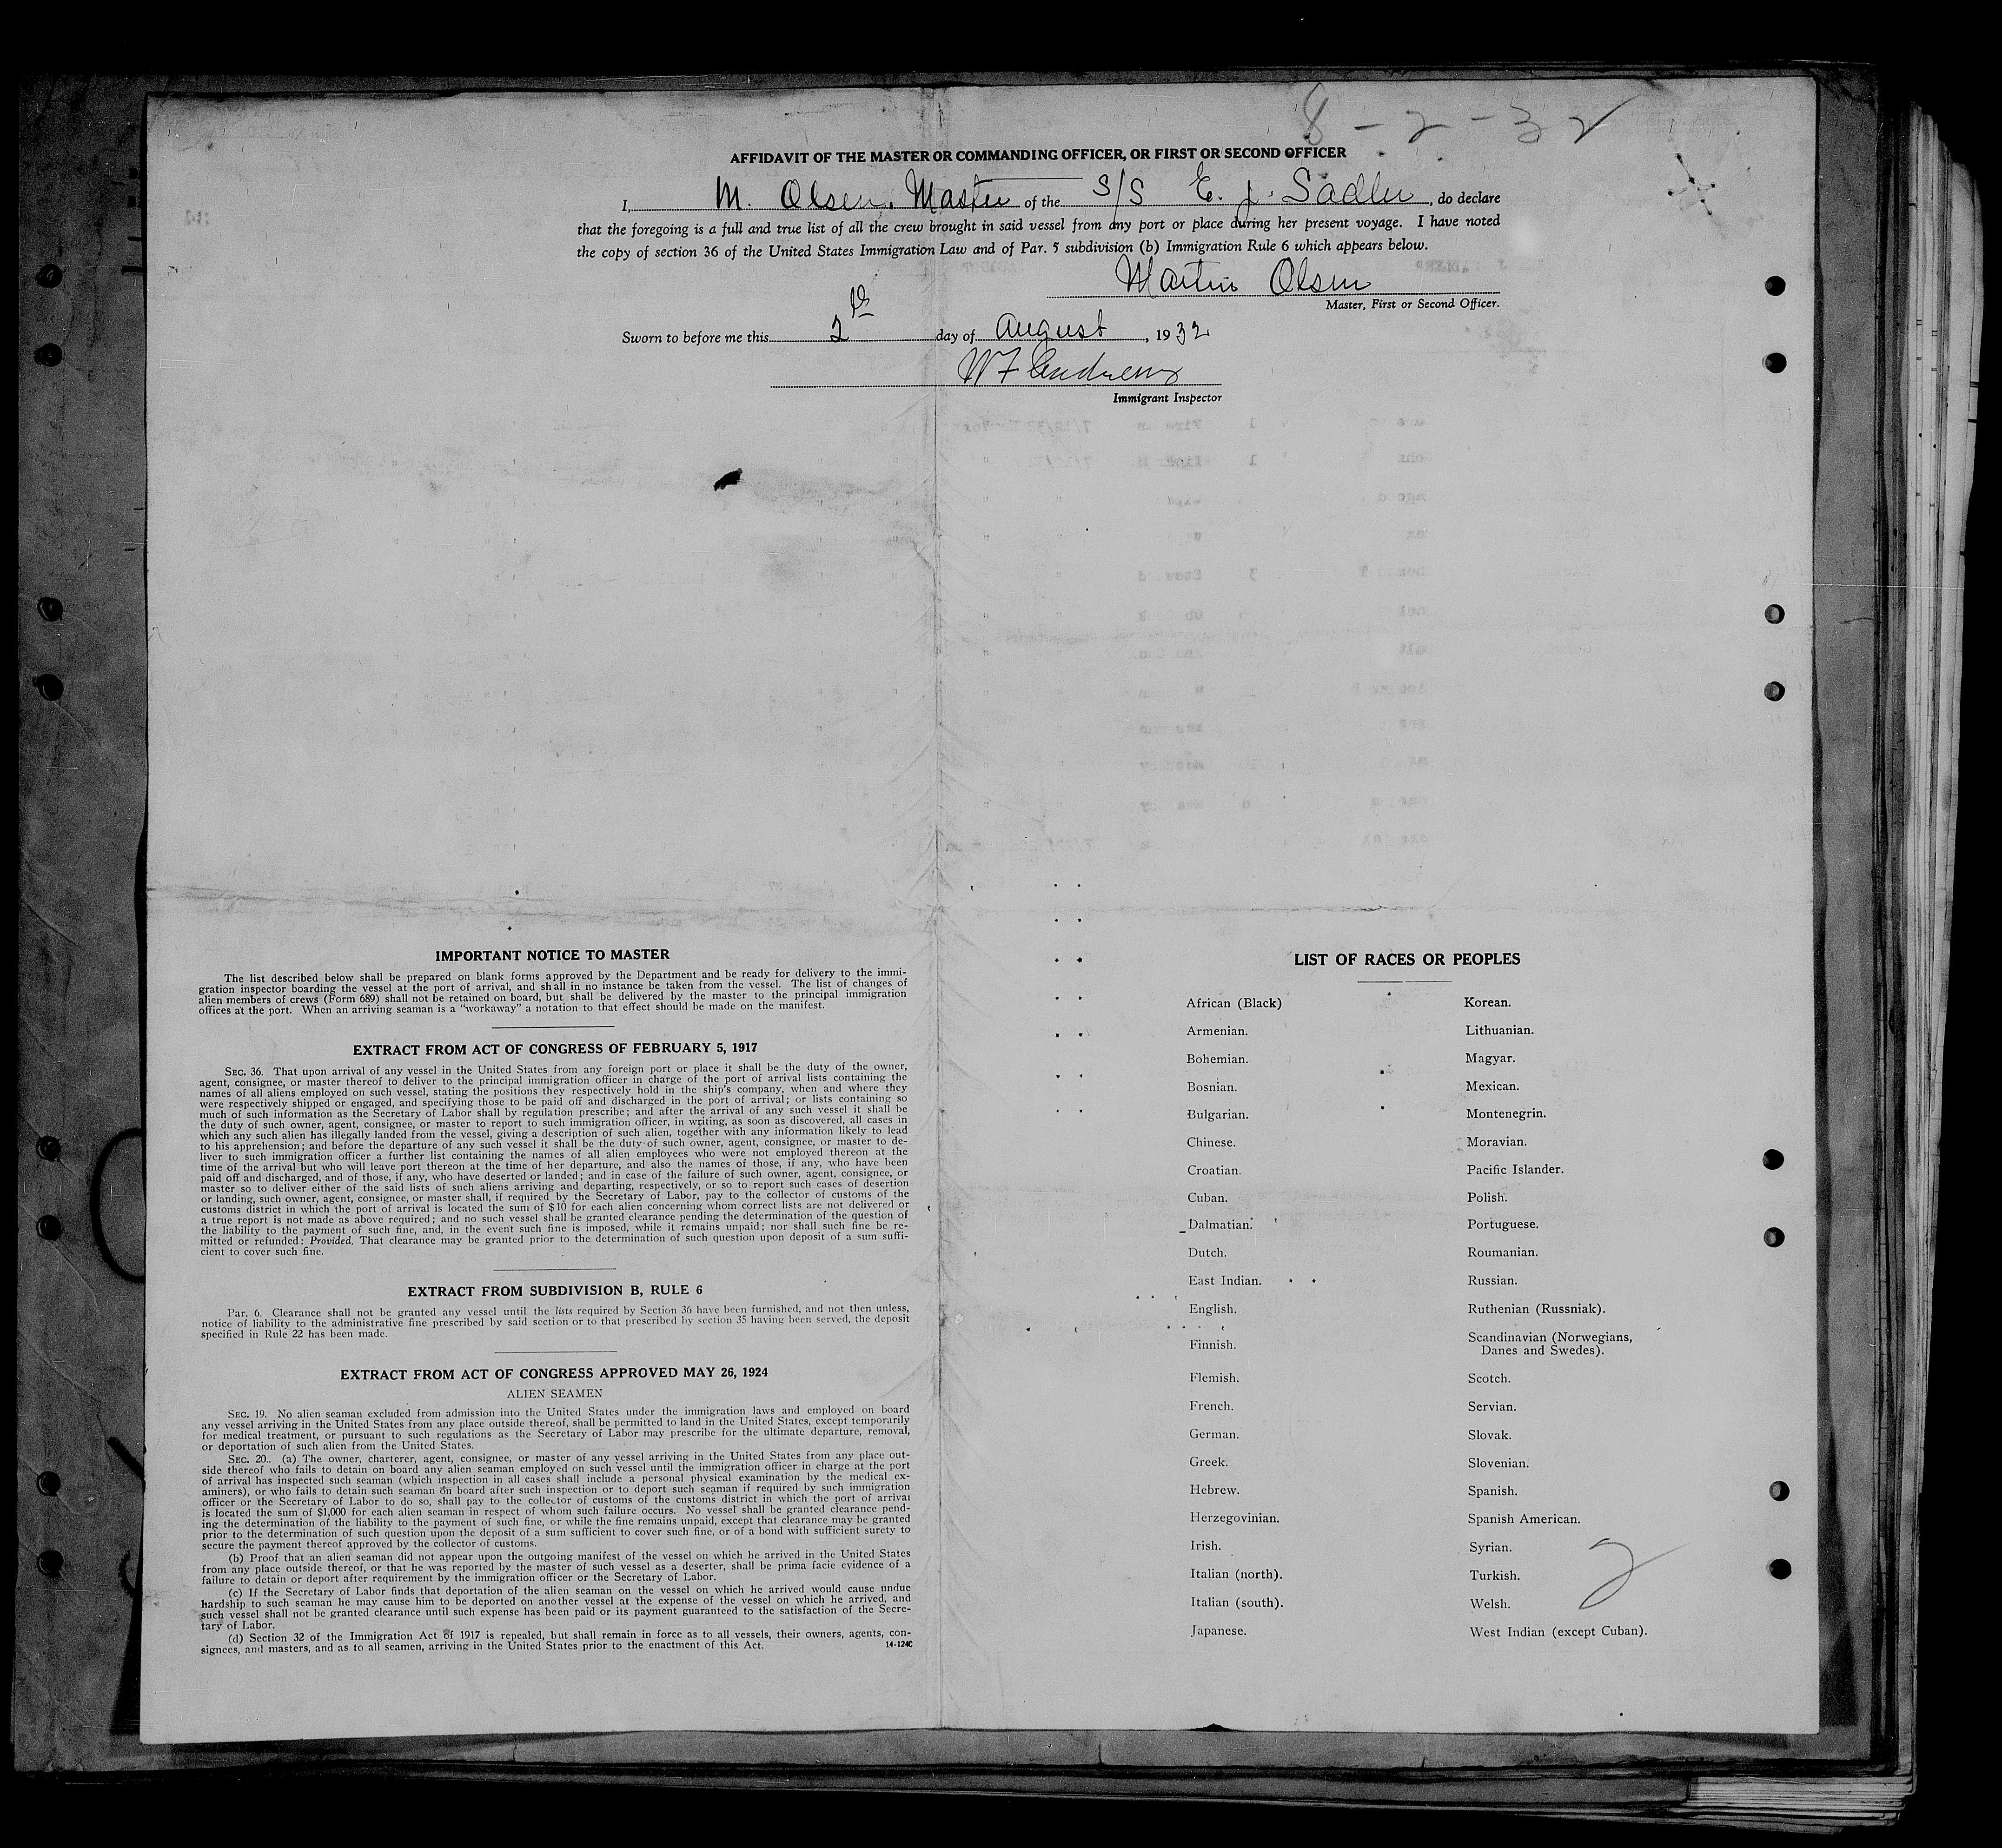 8-2-32
AFFIDAVIT OF THE MASTER OR COMMANDING OFFICER, OR FIRST OR SECOND OFFICER
I, M. Olsen, Master of the S/S E. J. Sadler, do declare
that the foregoing is a full and true list of all the crew brought in said vessel from any port or place during her present voyage. I have noted
the copy of section 36 of the United States Immigration Law and of Par. 5 subdivision (b) Immigration Rule 6 which appears below.
Martin Olsen
Master, First or Second Officer.
Sworn to before me this 2 day of August, 1932
W F Andrews
Immigrant Inspector
IMPORTANT NOTICE TO MASTER
The list described below shall be prepared on blank forms approved by the Department and be ready for delivery to the immi-
gration inspector boarding the vessel at the port of arrival, and shall in no instance be taken from the vessel. The list of changes of
alien members of crews (Form 689) shall not be retained on board, but shall be delivered by the master to the principal immigration
offices at the port. When an arriving seaman is a "workaway" a notation to that effect should be made on the manifest.
EXTRACT FROM ACT OF CONGRESS OF FEBRUARY 5, 1917
SEC. 36. That upon arrival of any vessel in the United States from any foreign port or place it shall be the duty of the owner,
agent, consignee, or master thereof to deliver to the principal immigration officer in charge of the port of arrival lists containing the
names of all aliens employed on such vessel, stating the positions they respectively hold in the ship's company, when and where they
were respectively shipped or engaged, and specifying those to be paid off and discharged in the port of arrival; or lists containing so
much of such information as the Secretary of Labor shall by regulation prescribe; and after the arrival of any such vessel it shall be
the duty of such owner, agent, consignee, or master to report to such immigration officer, in writing, as soon as discovered, all cases in
which any such alien has illegally landed from the vessel, giving a description of such alien, together with any information likely to lead
to his apprehension; and before the departure of any such vessel it shall be the duty of such owner, agent, consignee, or master to de-
liver to such immigration officer a further list containing the names of all alien employees who were not employed thereon at the
time of the arrival but who will leave port thereon at the time of her departure, and also the names of those, if any, who have been
paid off and discharged, and of those, if any, who have deserted or landed; and in case of the failure of such owner, agent, consignee, or
master so to deliver either of the said lists of such aliens arriving and departing, respectively, or so to report such cases of desertion
or landing, such owner, agent, consignee, or master shall, if required by the Secretary of Labor, pay to the collector of customs of the
customs district in which the port of arrival is located the sum of $10 for each alien concerning whom correct lists are not delivered or
a true report is not made as above required; and no such vessel shall be granted clearance pending the determination of the question of
the liability to the payment of such fine, and, in the event such fine is imposed, while it remains unpaid; nor shall such fine be re-
mitted or refunded: Provided, That clearance may be granted prior to the determination of such question upon deposit of a sum suffi-
cient to cover such fine.
EXTRACT FROM SUBDIVISION B, RULE 6
Par. 6. Clearance shall not be granted any vessel until the lists required by Section 36 have been furnished, and not then unless,
notice of liability to the administrative fine prescribed by said section or to that prescribed by section 35 having been served, the deposit
specified in Rule 22 has been made.
EXTRACT FROM ACT OF CONGRESS APPROVED MAY 26, 1924
ALIEN SEAMEN
SEC. 19. No alien seaman excluded from admission into the United States under the immigration laws and employed on board
any vessel arriving in the United States from any place outside thereof, shall be permitted to land in the United States, except temporarily
for medical treatment, or pursuant to such regulations as the Secretary of Labor may prescribe for the ultimate departure, removal,
or deportation of such alien from the United States.
SEC. 20. (a) The owner, charterer, agent, consignee, or master of any vessel arriving in the United States from any place out-
side thereof who fails to detain on board any alien seaman employed on such vessel until the immigration officer in charge at the port
of arrival has inspected such seaman (which inspection in all cases shall include a personal physical examination by the medical ex-
aminers), or who fails to detain such seaman on board after such inspection or to deport such seaman if required by such immigration
officer or the Secretary of Labor to do so, shall pay to the collector of customs of the customs district in which the port of arrival
is located the sum of $1,000 for each alien seaman in respect of whom such failure occurs. No vessel shall be granted clearance pend-
ing the determination of the liability to the payment of such fine, or while the fine remains unpaid, except that clearance may be granted
prior to the determination of such question upon the deposit of a sum sufficient to cover such fine, or of a bond with sufficient surety to
secure the payment thereof approved by the collector of customs.
(b) Proof that an alien seaman did not appear upon the outgoing manifest of the vessel on which he arrived in the United States
from any place outside thereof, or that he was reported by the master of such vessel as a deserter, shall be prima facie evidence of a
failure to detain or deport after requirement by the immigration officer or the Secretary of Labor.
(c) If the Secretary of Labor finds that deportation of the alien seaman on the vessel on which he arrived would cause undue
hardship to such seaman he may cause him to be deported on another vessel at the expense of the vessel on which he arrived, and
such vessel shall not be granted clearance until such expense has been paid or its payment guaranteed to the satisfaction of the Secre-
tary of Labor.
(d) Section 32 of the Immigration Act of 1917 is repealed, but shall remain in force as to all vessels, their owners, agents, con-
signees, and masters, and as to all seamen, arriving in the United States prior to the enactment of this Act.
14-1240
LIST OF RACES OR PEOPLES
African (Black)
Armenian.
Bohemian.
Bosnian.
Bulgarian.
Chinese.
Croatian.
Cuban.
Dalmatian.
Dutch.
East Indian.
English.
Finnish.
Flemish.
French.
German.
Greek.
Hebrew.
Herzegovinian.
Irish.
Italian (north).
Italian (south).
Japanese.
Korean.
Lithuanian.
Magyar.
Mexican.
Montenegrin.
Moravian.
Pacific Islander.
Polish.
Portuguese.
Roumanian.
Russian.
Ruthenian (Russniak).
Scandinavian (Norwegians,
Danes and Swedes).
Scotch.
Servian.
Slovak.
Slovenian.
Spanish.
Spanish American.
Syrian.
Turkish.
Welsh.
West Indian (except Cuban).
2